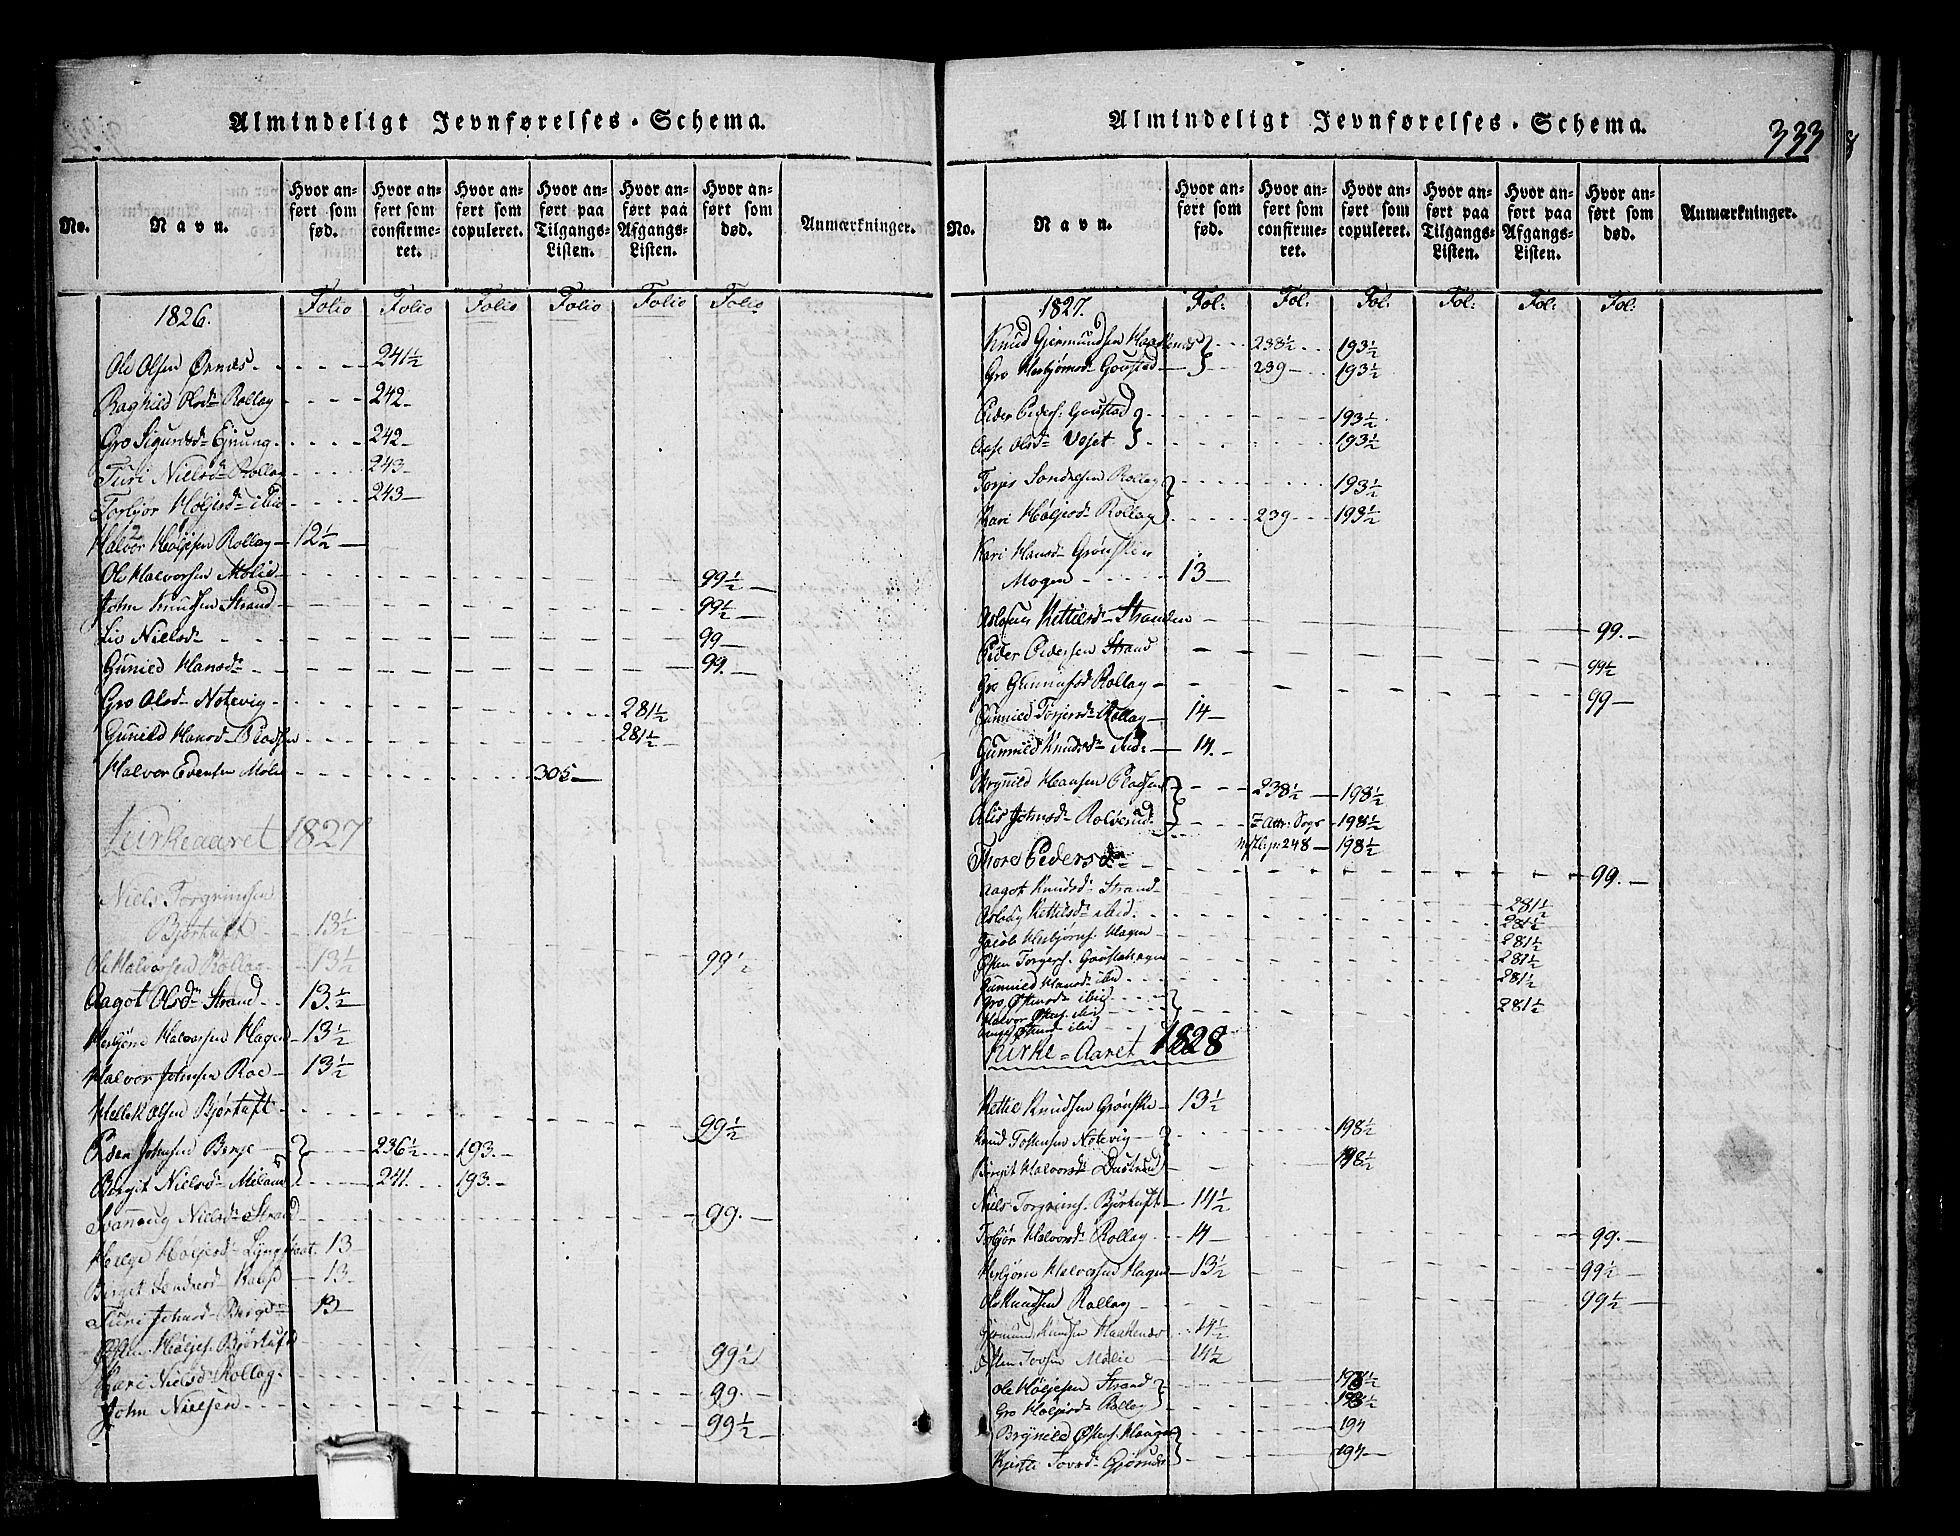 Almindeligt Jevnførelses-Schema.
No.
Navn.
Hvor anført som fød.
Hvor anført som confirmeret.
Hvor anført som copuleret.
Hvor anført paa Tilgangs-Listen.
Hvor anført paa Afgangs-Listen.
Hvor anført som død.
Anmærkninger.
1826. Folio Folio Folio Folio Folio Folio
Ole Olsen Ørnæs 241½
Raghild Olsdr Rollag 242
Gro Sigurdsdr 242
Turi Nielsdr Rollag 243
Torbjør Høljesdr ibid 243
Halvor Høljesen Rollag 12½
Ole Halvorsen Molie 99½
John Knudsen Strand 99½
Liv Nielsdr 99
Gunild Hansdr 99.
Gro Olsdr Notevig 281½
Gunild Hansdr Pladsen 281½
Halvor Evensen Molie 305
Kirkeaaret 1827
Niels Torgrimsen
Bjørtuft 13½
Ole Halvorsen Rollag 13½ 99½
Aagot Olsdr Strand 13½
Herbjørn Halvorsen Hagen 13½
Halvor Johnsen Roe 13½
Olsen Bjørtuft 99½
Johnsen Berge 236½ 193.
Birgit Nielsdr Miland 241. 193.
Svannoug Nielsdr Strand 99.
Helge Høljesdr 13
Birgit 13
Turi Johnsdr Berge 13
Høljes. Bjørtuft 99½
Kari Nielsdr Rollag 99
John Nielsen 99½
Almindeligt Jevnførelses-Schema.
333
No.
Navn.
Hvor anført som fød.
Hvor anført som confirmeret.
Hvor anført som copuleret.
Hvor anført paa Tilgangs-Listen.
Hvor anført paa Afgangs-Listen.
Hvor anført som død.
Anmærkninger.
1827. Fol: Fol: Fol: Fol: Fol: Fol:
Knud Gjermundsen Haakenæs 238½ 193½
Gro Herbjørnsdr Goustad 239 193½
Peder Peders. Goustad 193½
Aase Olsdr 193½
Torjer Sondresen Rollag 193½
Kari Høljesdr Rollag 239 193½
Kari Hansdr Grønskei
Mogen 13
Kettilsdr Stranden 99.
Peder Pedersen Strand 99½
Gro Gunnufsd Rollag 99
Gunnild Torjersdr Rollag 14
Gunnild Knudsdr ibid 14.
Hansen Pladsen 238½ 198½
Johnsdr 198½
248 198½
Thore Pedersdr 99.
Aagot Knudsdr Strand 281½
Kettilsdr ibid. 281½
Jacob Herbjørns. Hagen 281½
Østen Torgers. Goustahagen 281½
Gunnild Hansdr ibid 281½
Gro Østensdr ibid 281½
Halvor Østens. ibid
ibid
Kirke=Aaret 1828
Kettil Knudsen Grønskei 13½
Knud Tostensen Notevig 198½
Birgit Halvorsdr 198½
Niels Torgrims. Bjørtuft 14½
Torbjør Halvorsdr Rollag 14 99.
Herbjørn Halvorsen Hagen 13½ 99½
Ole Knudsen Rollag 99½
Gjermund Knudsen Haakenæs 14½
Østen Molie 14½
Ole Høljesen Strand 198½
Gro Høljesdr Rollag 193½
Østens. Haugen 194
194